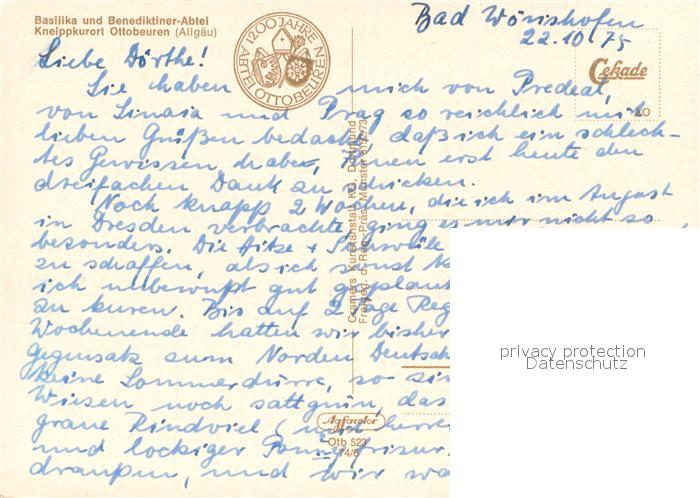 Basilika und Benediktiner-Abtei
Kneippkurort Ottobeuren (Allgäu)
1200 JAHRE
ABTEI OTTOBEUREN
Bad Wörishofen
22.10.75
Cekade
Liebe Dörthe!
Sie haben mich von Predeal,
von Sinaia und Prag so reichlich mit
lieben Grüßen bedacht, daß ich ein schlech-
tes Gewissen habe, Ihnen erst heute den
dreifachen Dank zu schicken.
Noch knapp 2 Wochen, die ich im August
in Dresden verbrachte, ging es mir nicht so
besonders. Die Hitze + Schwüle
zu schaffen, als ich sonst
ich unbewußt gut geplant
zu kuren. Bis auf 2 Tage Reg
Wochenende hatten wir bisher
Gegensatz zum Norden Deutsch
keine Sommerdürre, so sin
Wiesen noch sattgrün, das
graue Rindviel (mit herr
und lockiger Ponnyfrisur
draußen, und wir wa
Cramers Kunstanstalt KG, Dortmund
Freigeg. d. Reg.-Präs. Münster
Agfacolor
Otb 523
14/6
privacy protection
Datenschutz